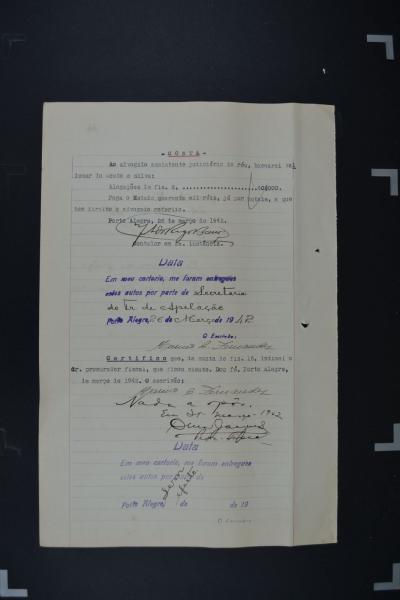 - C O N T A -
Ao advogado assistente judiciário do réu, bacharel Wal
domar do Couto e Silva:
Alegações de fls. 8. ........................ 40$000.
Paga o Estado quarenta mil réis, já por metade, a que
tem direito o advogado referido.
Porto Alegre, 26 de março de 1942.
Contador em 2a. instância.
Data
Em meu cartorio, me foram entregues
estes autos por parte de Secretaria
do Tr. de Apelação
Porto Alegre, 26 de Março de 1942
O Escrivão:
C e r t i f i c o que, da conta de fls. 16, intimei o
dr. procurador fiscal, que ficou ciente. Dou fé. Porto Alegre,
de março de 1942. O escrivão:
Nada a opôr.
Em março 1942
Data
Em meu cartorio, me foram entregues
estes autos por parte de
Sem efeito
Porto Alegre, de de 19
O Escrivão